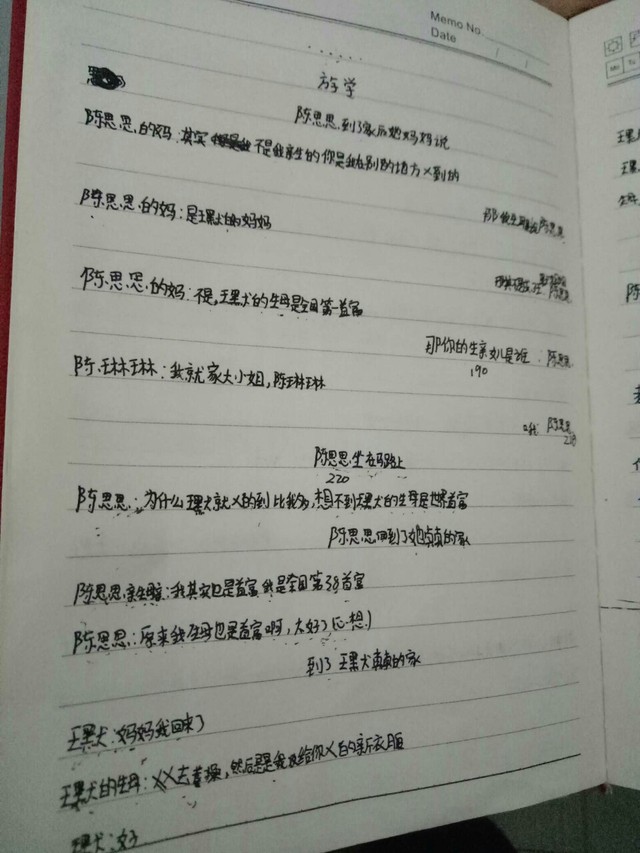 Memo No.
Date / /
……
放学
陈思思到了家后她妈妈说
陈思思的妈:其实 不是我亲生的你是我在别的地方义到的
陈思思的妈:是王黑犬的妈妈
陈思思
陈思思的妈:不是,王黑犬的生母是全国第一首富
那你的生亲女儿是谁:陈思思
190
陈琳琳:我就家大小姐,陈琳琳
陈思思
陈思思坐在马路上
220
陈思思:为什么王黑犬就义的到比我多,想不到王黑犬的生母是世界首富
陈思思回到了她真真的家
陈思思亲生母:我其实也是首富我是全国第38首富
陈思思:原来我生母也是首富啊,太好了(心想)
到了王黑犬真真的家
王黑犬:妈妈我回来了
王黑犬的生母:义义去着操,然后是我及给你义白的新衣服
王黑犬:好